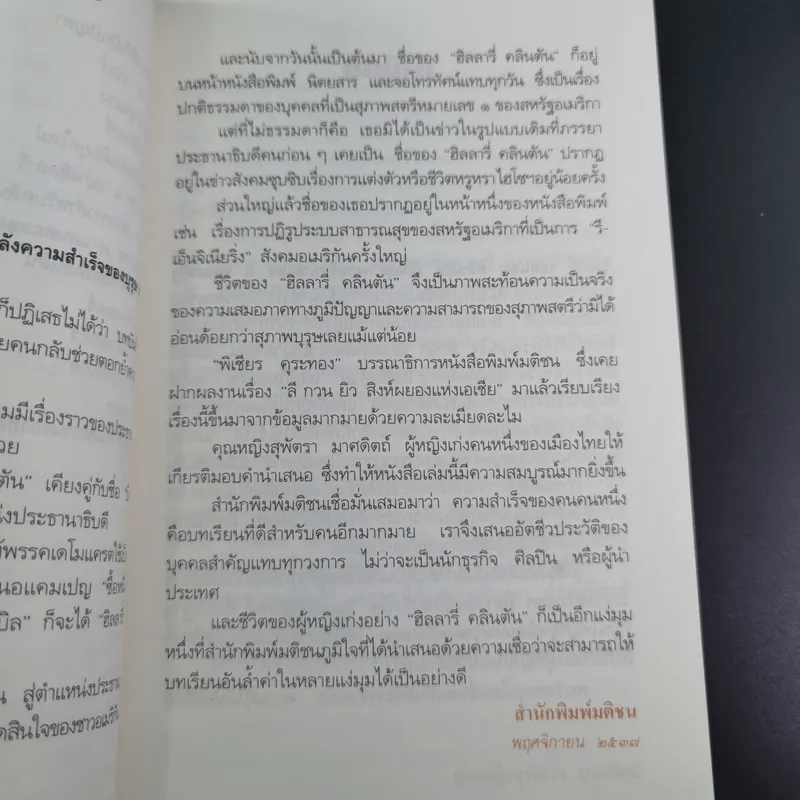 ลังความสำเร็จของบุรุษ
ก็ปฏิเสธไม่ได้ว่า
ยคนกลับช่วยตอกย้ำ
มมีเรื่องราวของประชา
วย
ตัน” เคียงคู่กับชื่อ
งประธานาธิบดี
พรรคเดโมแครตใช้
นอแคมเปญ “ซื้อหนึ่
บิล” ก็จะได้ “ฮิลลารี่
น สู่ตำแหน่งประธานา
ดสินใจของชาวอเมริกัน
และนับจากวันนั้นเป็นต้นมา ชื่อของ “ฮิลลารี่ คลินตัน” ก็อยู่
บนหน้าหนังสือพิมพ์ นิตยสาร และจอโทรทัศน์แทบทุกวัน ซึ่งเป็นเรื่อง
ปกติธรรมดาของบุคคลที่เป็นสุภาพสตรีหมายเลข ๑ ของสหรัฐอเมริกา
แต่ที่ไม่ธรรมดาก็คือ เธอมิได้เป็นข่าวในรูปแบบเดิมที่ภรรยา
ประธานาธิบดีคนก่อน ๆ เคยเป็น ชื่อของ “ฮิลลารี่ คลินตัน” ปรากฏ
อยู่ในข่าวสังคมซุบซิบเรื่องการแต่งตัวหรือชีวิตหรูหราไฮโซฯอยู่น้อยครั้ง
ส่วนใหญ่แล้วชื่อของเธอปรากฏอยู่ในหน้าหนึ่งของหนังสือพิมพ์
เช่น เรื่องการปฏิรูประบบสาธารณสุขของสหรัฐอเมริกาที่เป็นการ “รี-
เอ็นจิเนียริ่ง” สังคมอเมริกันครั้งใหญ่
ชีวิตของ “ฮิลลารี่ คลินตัน” จึงเป็นภาพสะท้อนความเป็นจริง
ของความเสมอภาคทางภูมิปัญญาและความสามารถของสุภาพสตรีว่ามิได้
อ่อนด้อยกว่าสุภาพบุรุษเลยแม้แต่น้อย
“พิเชียร คุระทอง” บรรณาธิการหนังสือพิมพ์มติชน ซึ่งเคย
ฝากผลงานเรื่อง “ลี กวน ยิว สิงห์ผยองแห่งเอเชีย” มาแล้วเรียบเรียง
เรื่องนี้ขึ้นมาจากข้อมูลมากมายด้วยความละเมียดละไม
คุณหญิงสุพัตรา มาศดิตถ์ ผู้หญิงเก่งคนหนึ่งของเมืองไทยให้
เกียรติมอบคำนำเสนอ ซึ่งทำให้หนังสือเล่มนี้มีความสมบูรณ์มากยิ่งขึ้น
สำนักพิมพ์มติชนเชื่อมั่นเสมอมาว่า ความสำเร็จของคนคนหนึ่ง
คือบทเรียนที่ดีสำหรับคนอีกมากมาย เราจึงเสนออัตชีวประวัติของ
บุคคลสำคัญแทบทุกวงการ ไม่ว่าจะเป็นนักธุรกิจ ศิลปิน หรือผู้นำ
ประเทศ
และชีวิตของผู้หญิงเก่งอย่าง “ฮิลลารี่ คลินตัน” ก็เป็นอีกแง่มุม
หนึ่งที่สำนักพิมพ์มติชนภูมิใจที่ได้นำเสนอด้วยความเชื่อว่าจะสามารถให้
บทเรียนอันล้ำค่าในหลายแง่มุมได้เป็นอย่างดี
สำนักพิมพ์มติชน
พฤศจิกายน ๒๕๓๗